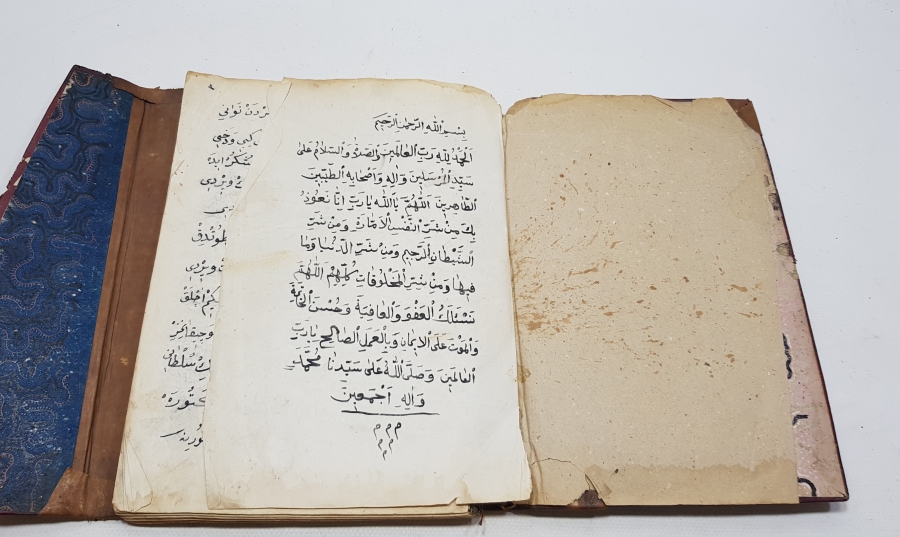 بِسْمِ اللّٰهِ الرَّحْمٰنِ الرَّحِيمِ
اَلْحَمْدُ لِلّٰهِ رَبِّ الْعَالَمِينَ وَالصَّلٰوةُ وَالسَّلَامُ عَلٰى
سَيِّدِ الْمُرْسَلِينَ وَاٰلِهِ وَاَصْحَابِهِ الطَّيِّبِينَ
الطَّاهِرِينَ اَللّٰهُمَّ يَا اَللّٰهُ يَا رَبِّ اِنَّا نَعُوذُ
بِكَ مِنْ شَرِّ النَّفْسِ الْاَمَّارَةِ وَمِنْ شَرِّ
الشَّيْطَانِ الرَّجِيمِ وَمِنْ شَرِّ الدُّنْيَا وَمَا
فِيهَا وَمِنْ شَرِّ الْمَخْلُوقَاتِ كُلِّهِمْ اَللّٰهُمَّ
نَسْئَلُكَ الْعَفْوَ وَالْعَافِيَةَ وَحُسْنَ الْخَاتِمَةِ
وَالْمَوْتَ عَلَى الْاِيمَانِ وَبِالْعَمَلِ الصَّالِحِ يَا رَبَّ
الْعَالَمِينَ وَصَلَّى اللّٰهُ عَلٰى سَيِّدِنَا مُحَمَّدٍ
وَاٰلِهِ اَجْمَعِينَ
م م م
م م
م